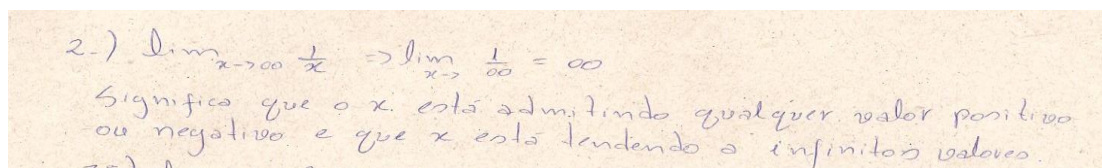 2-) lim x→∞ 1/x => lim x→ 1/∞ = ∞
Significa que o x. está admitindo qualquer valor positivo
ou negativo e que x está tendendo a infinitos valores.